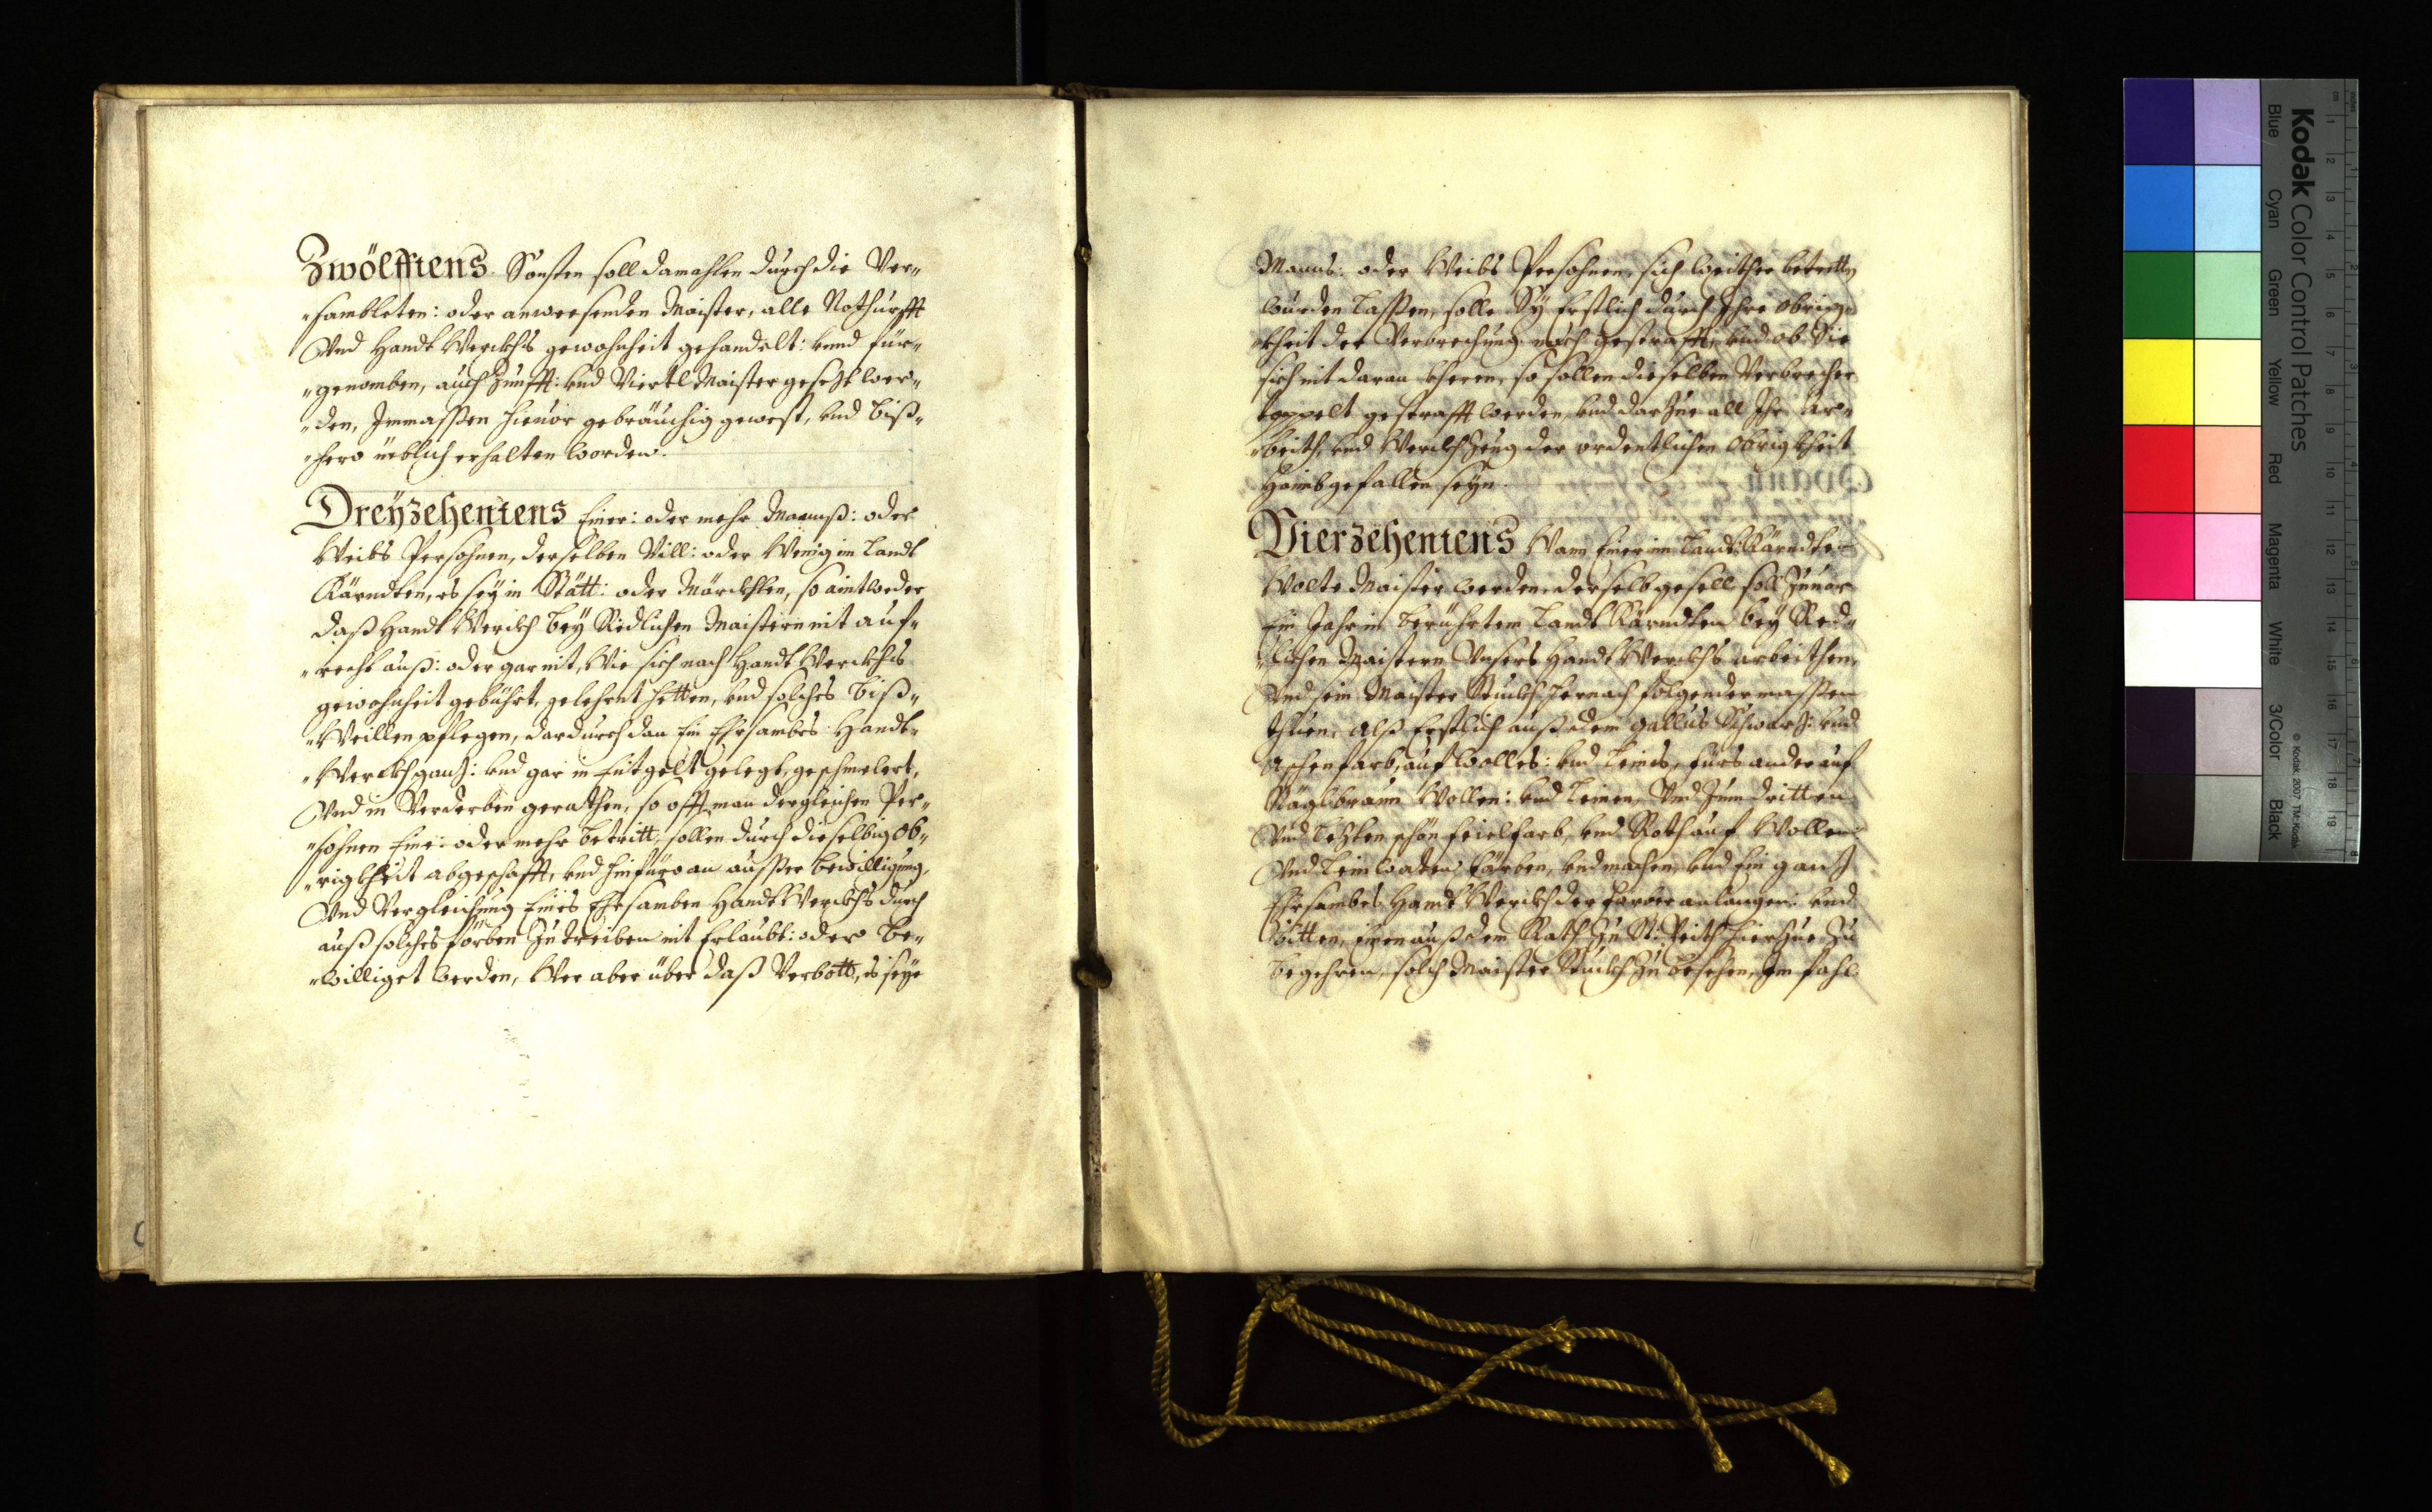 Zwölfftens Sonsten soll damahlen durch die Ver„
„sambleten: oder anweesenden Maister, alle Nothurfft
Vnd Handt Werckhs gewohnheit gehandelt: vnnd für„
„genomben, auch Zunfft: vnd Viertl Maister gesezt wer„
„den, Inmassen hieuor gebräuchig gewest, vnd biß„
„hero üeblich erhalten worden.
Dreÿzehentens Einer: oder mehr Mannß: oder
Weibs Persohnen, derselben Vill: oder Wenig im Landt
Kärndten, es seÿ in Stätt: oder Märckhten, so aintweder
daß Handt Werckh beÿ Redlichen Maistern nit auf„
„recht auß: oder gar nit, Wie sich nach Handt Werckhs
gewohnheit gebührt, gelehrnt hetten, vnd solches biß„
„Weillen pflegen, dardurch dan Ein Ehrsambes Handt„
„Werckh ganz: vnd gar in Entgelt gelegt, geschmelert,
Vnd in Verderben gerathen, so offt man dergleichen Per„
„sohnen Eine: oder mehr betritt, sollen durch dieselbig Ob„
„rigkheit abgeschafft, vnd hinfüro an ausser bewilligung,
Vnd Vergleichung Eines Ehrsamben Handt Werckhs durch
auß solches förben Zu treiben nit Erlaubt: oder be„
„williget werden, Wer aber über daß Verbott, es seye
Manns: oder Weibs Persohnen, sich weither betretten
wurden lassen, solle Sÿ Erstlich durch Ihre Obrig„
„kheit der Verbrechung nach gestrafft, vnd ob Sie
sich nit daran kheren, so sollen dieselben Verbrecher
toppelt gestrafft werden, vnd darzue all Ihr Ar„
„beith, vnd Werckh Zeug der ordentlichen Obrigkheit
Haimbgefallen seyn.
Vierzehentens Wann Einer im Landt Kärndten
Wolte Maister werden, derselb gesell soll Zuuor
Ein Jahr in berührtem Landt Kärndten beÿ Red„
„lichen Maistern Vnsers Handt Werckhs arbeithen,
Vnd sein Maister Stuckh hernach folgendermassen
thuen, Alß Erstlich auß dem gallus Schwarz: vnd
Aschenfarb, auf wolles: vnd leines, fürs ander auf
Näglbraun Wollen: vnd leinen, Vnd Zum dritten
Vnd lezten schön feielfarb, vnd Roth auf Wollen
Vnd Leinwaten, färben, vnd machen, vnd Ein ganz
Ehrsambes Handt Werckh der färber anlangen: vnd
bitten, Einen auß dem Rath Zu St: Veith hierzue Zu
begehren, solch Maister Stuckh Zu besehen, Im fahl